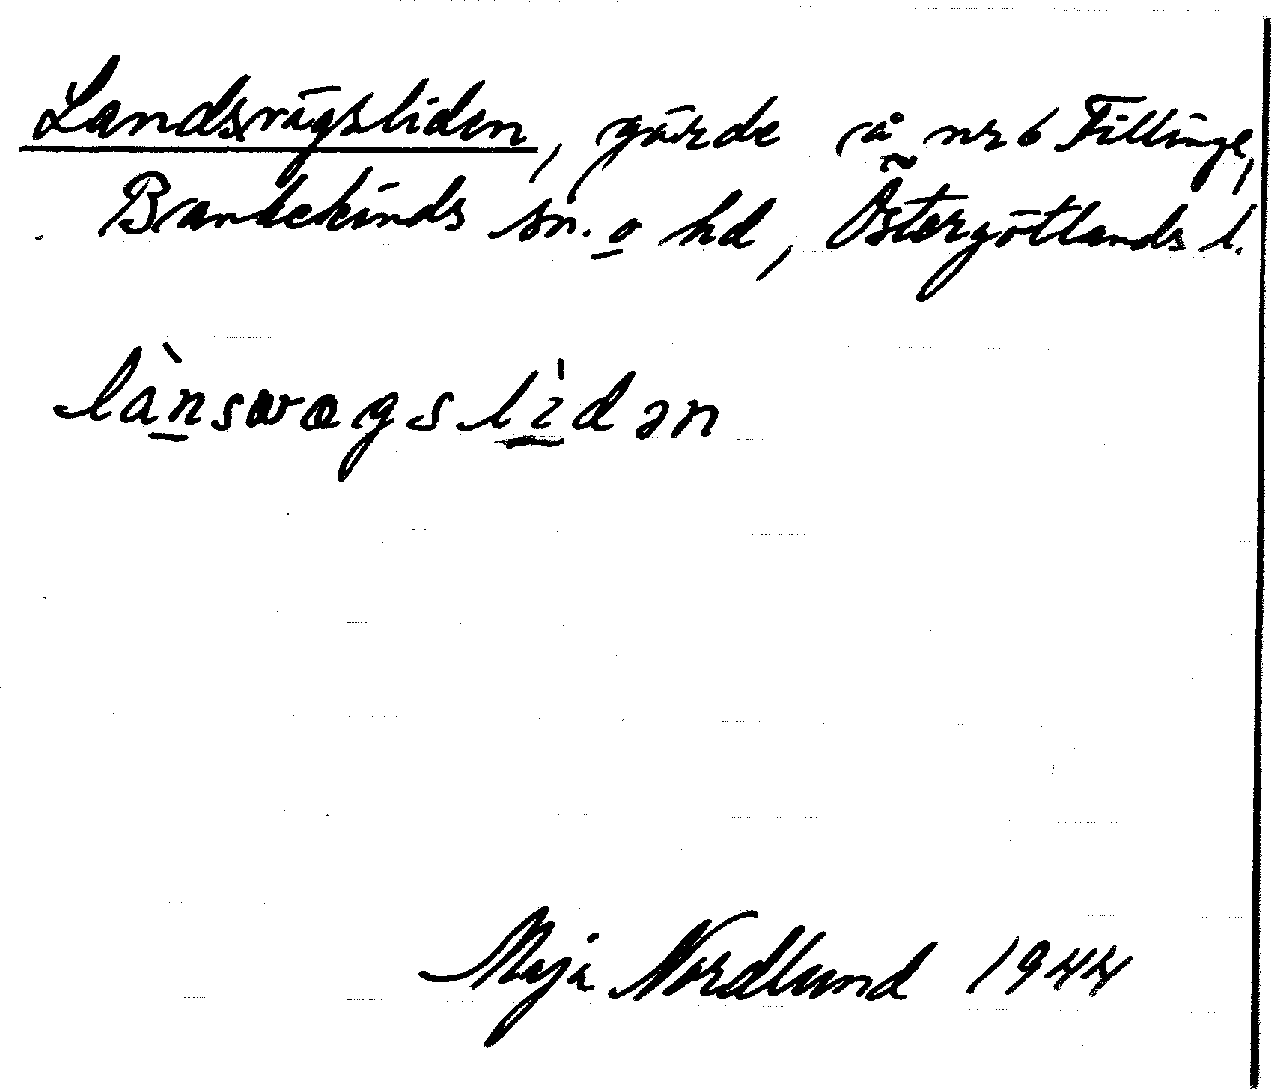 Landsvägsliden, gärde på nr 6 Fillinge,
Bankekinds sn. o hd, Östergötlands l.
lànswægslìdən
Maja Nordlund 1944